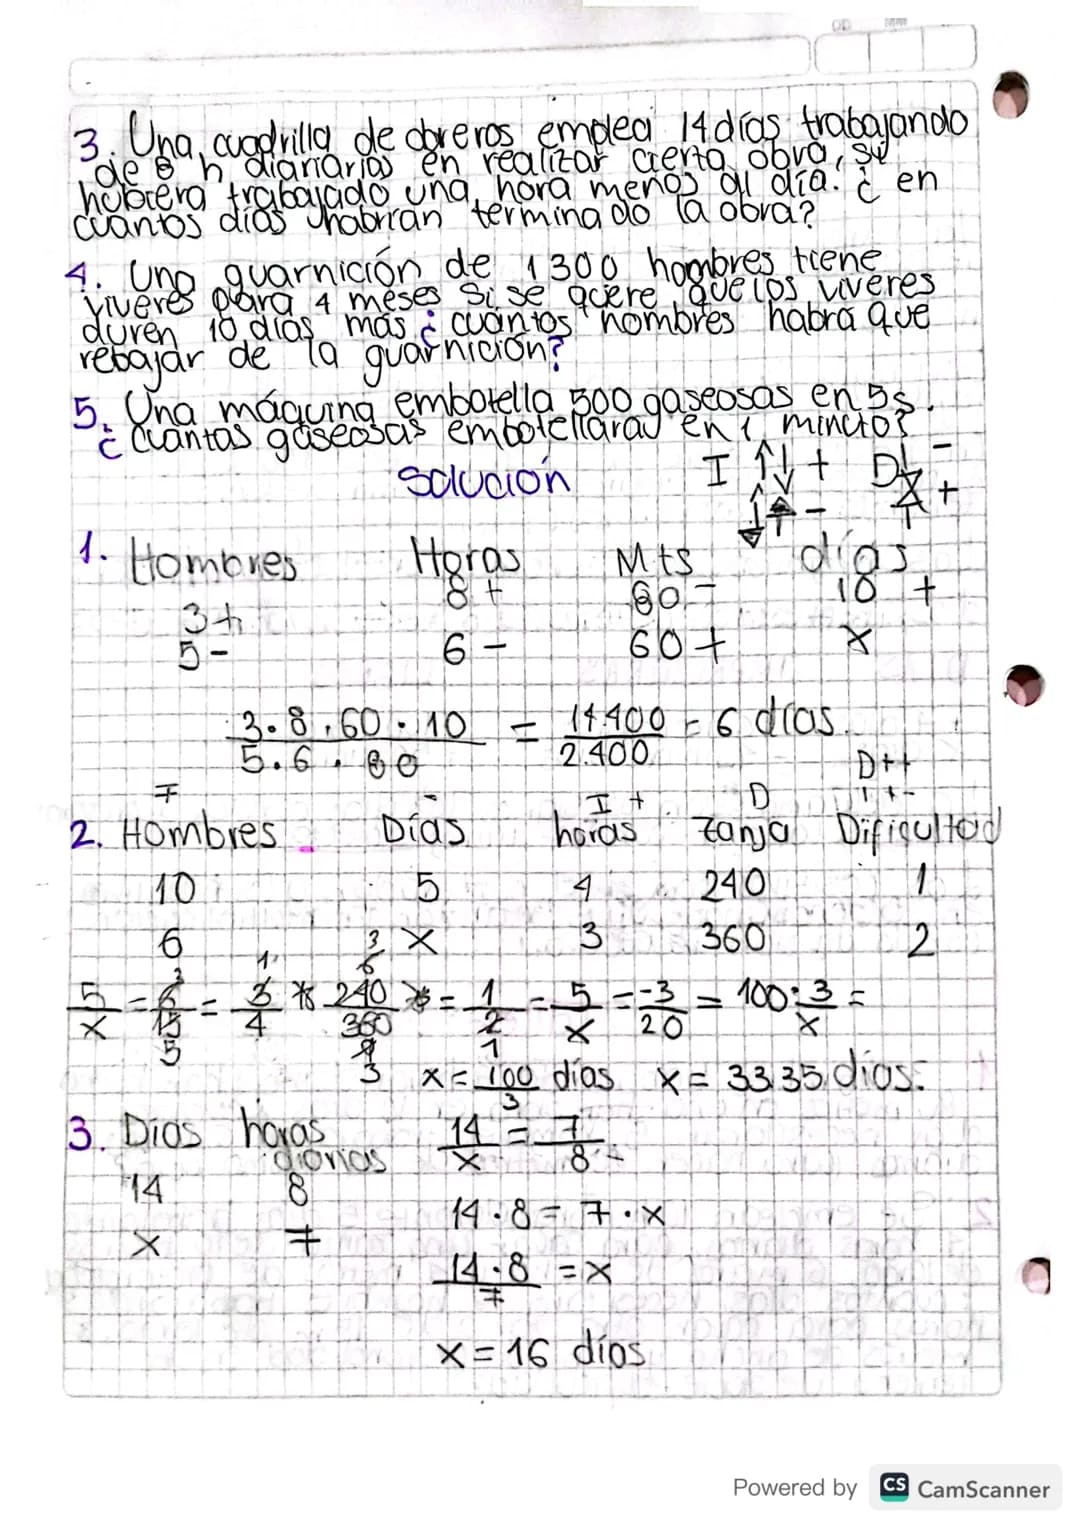 3. Una cuadrilla de obreros emplea 14 días trabajando
de 8 h diariarias en realizar cierta obra, si
hubiera trabajado una hora menos al día. ¿ en
cuantos días habrían terminado la obra?
4. Una guarnición de 1300 hombres tiene
viveres para 4 meses si se quere que los viveres
duren 10 días más ¿ cuántos hombres habrá que
rebajar de la guarnición?
5. Una máquina embotella 500 gaseosas en 5s.
¿ Cuántas gaseosas embotellará en 1 minuto?
Solución
I ↑↓ + D -
↓↑ - +
1. Hombres Horas Mts días
3+ 8+ 80- 10 +
5- 6- 60+ x
3.8.60.10 = 14.400 = 6 días.
5.6.80 2.400
D++
+ - I + D I +-
2. Hombres Días horas zanja Dificultad
10 5 4 240 1
6 x 3 360 2
5/x = 6/15 = 3/4 * 240/360 = 1/2 = 5/x = -3/20 = 100: 3/x =
x = 100/3 días x = 33.35 días.
3. Dias horas diarias 14/x = 7/8
14 8
14.8 = 7.x
x 7
14.8/7 = x
x = 16 días
Powered by CS CamScanner